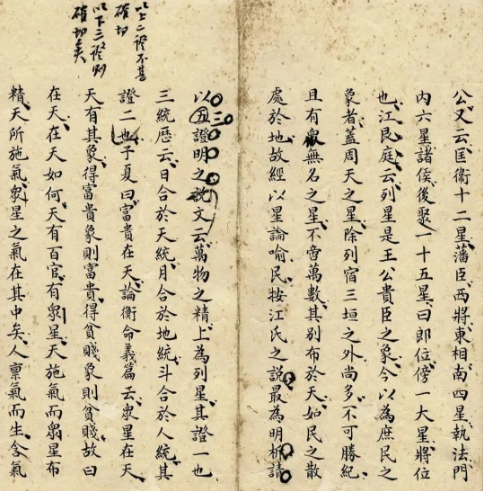 公又云匡衡十二星藩臣西將東相南四星執法門
內六星諸侯後聚一十五星曰郎位傍一大星將位
也江艮庭云列星是王公貴臣之象今以為庶民之
象者蓋周天之星除列宿三垣之外尚多不可勝紀
且有衆無名之星不啻萬數其別布於天如民之散
處於地故經以星論喻民按江氏之說最為明析請
以上二證不甚
確切
以下三證則
確切矣
以五證明之說文云萬物之精上為列星其證一也
三統歷云日合於天統月合於地統斗合於人統其
證二也子夏曰富貴在天論衡命義篇云衆星在天
天有其象得富貴象則富貴得貧賤象則貧賤故曰
在天在天如何天有百官有衆星天施氣而衆星布
精天所施氣衆星之氣在其中矣人禀氣而生含氣